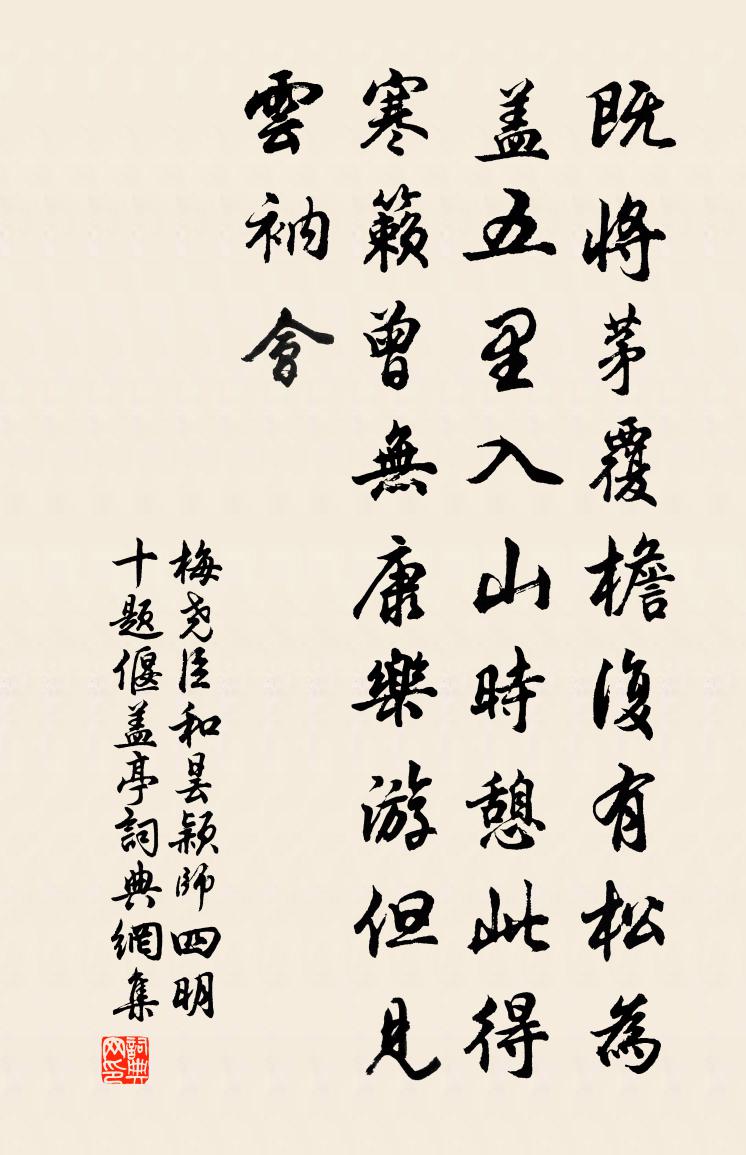 既將茅覆檐復有松為
蓋五里入山時憩此得
寒籟曾無康樂游但見
雲衲會
梅尧臣和昙颖师四明
十题偃盖亭詞典網集
詞典网印